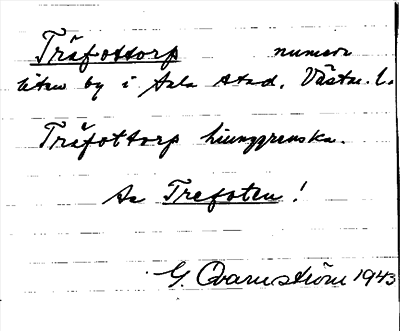 Träfottorp numera
liten by i Sala stad, Västm. l.
Träfottorp
Se Trefoten!
G. Qvarnström 1943